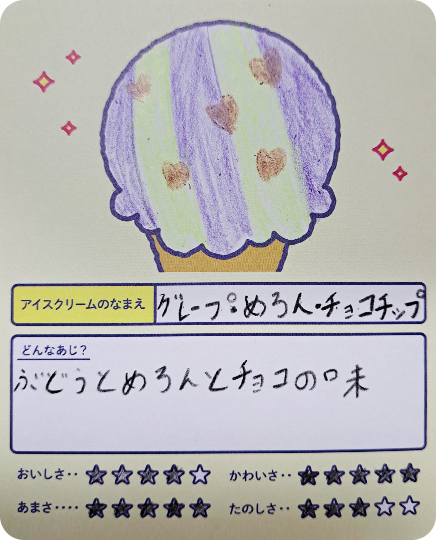 アイスクリームのなまえ
グレープ・めろん・チョコチップ
どんなあじ?
ぶどうとめろんとチョコの味
おいしさ‥ ★★★★☆
かわいさ‥ ★★★★★
あまさ‥‥ ★★★★★
たのしさ‥ ★★★☆☆